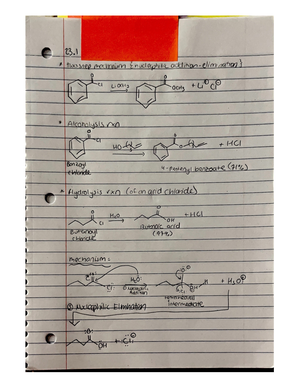 23.1
* Two step mechanism (nucleophilic addition-elimination)
Cl LiOCH3 OCH3 + Li⊕ Cl⊖
* Alcoholysis rxn
Cl HO + HCl
Benzoyl chloride
benzoate
* Hydrolysis rxn (of an acid chloride)
Cl H2O OH + HCl
Butanoyl chloride
Butanoic acid
Mechanism:
Cl H2O
Nucleophilic Addition
Tetrahedral intermediate
② Nucleophilic Elimination
OH + Cl